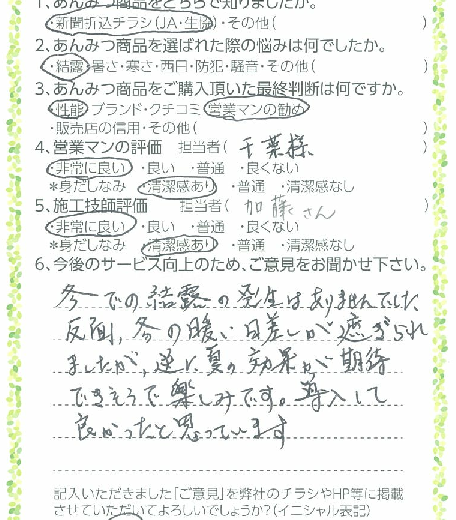 1、あんみつ商品をどちらで知りましたか。
・新聞折込チラシ(JA・生協)・その他( )
2、あんみつ商品を選ばれた際の悩みは何でしたか。
・結露・暑さ・寒さ・西日・防犯・騒音・その他( )
3、あんみつ商品をご購入頂いた最終判断は何ですか。
・性能・ブランド・クチコミ・営業マンの勧め
・販売店の信用・その他( )
4、営業マンの評価 担当者( 千葉様 )
・非常に良い ・良い ・普通 ・良くない
*身だしなみ ・清潔感あり ・普通 ・清潔感なし
5、施工技師評価 担当者( 加藤さん )
・非常に良い ・良い ・普通 ・良くない
*身だしなみ ・清潔感あり ・普通 ・清潔感なし
6、今後のサービス向上のため、ご意見をお聞かせ下さい。
冬での結露の発生はありませんでした
反面、冬の暖い日差しが遮ぎられ
ましたが、逆に夏の効果が期待
できそうで楽しみです。導入して
良かったと思っています
記入いただきました「ご意見」を弊社のチラシやHP等に掲載
させていただいてよろしいでしょうか?(イニシャル表記)